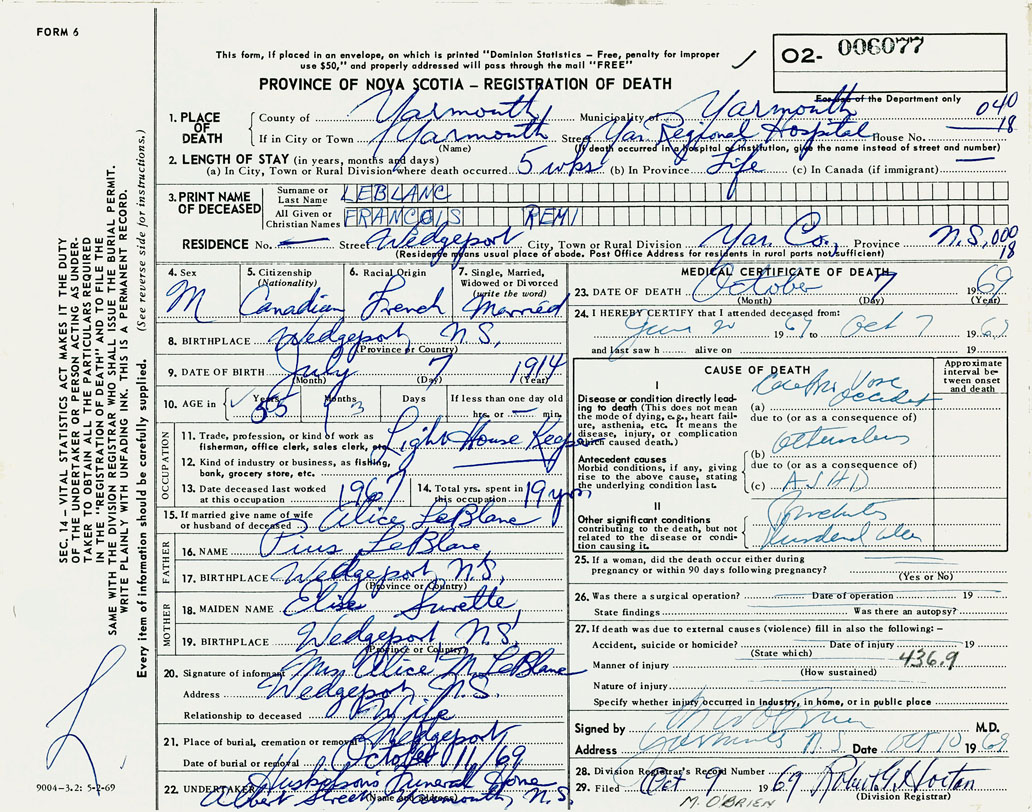 FORM 6
This form, if placed in an envelope, on which is printed "Dominion Statistics – Free, penalty for improper
use $50," and properly addressed will pass through the mail "FREE"
O2- 006077
PROVINCE OF NOVA SCOTIA – REGISTRATION OF DEATH
For use of the Department only
040
18
1. PLACE OF DEATH
County of Yarmouth Municipality of Yarmouth
If in City or Town Yarmouth Street Yar. Regional Hospital House No.
(Name) (If death occurred in a hospital or institution, give the name instead of street and number)
2. LENGTH OF STAY (in years, months and days)
(a) In City, Town or Rural Division where death occurred 5 wks (b) In Province Life (c) In Canada (if immigrant) —
3. PRINT NAME OF DECEASED
Surname or Last Name LEBLANC
All Given or Christian Names FRANCOIS REMI
RESIDENCE No. — Street Wedgeport City, Town or Rural Division Yar. Co., Province N.S, 000
18
(Residence means usual place of abode. Post Office Address for residents in rural parts not sufficient)
4. Sex
M
5. Citizenship
(Nationality)
Canadian
6. Racial Origin
French
7. Single, Married,
Widowed or Divorced
(write the word)
Married
8. BIRTHPLACE Wedgeport, N.S.
(Province or Country)
9. DATE OF BIRTH July 7 1914
(Month) (Day) (Year)
10. AGE in Years 55 Months 3 Days If less than one day old
hrs. or — min.
OCCUPATION
11. Trade, profession, or kind of work as
fisherman, office clerk, sales clerk, etc. Light House Keeper
12. Kind of industry or business, as fishing,
bank, grocery store, etc.
13. Date deceased last worked
at this occupation 1967
14. Total yrs. spent in
this occupation 19 yrs
15. If married give name of wife
or husband of deceased Alice LeBlanc
FATHER
16. NAME Pius LeBlanc
17. BIRTHPLACE Wedgeport N.S,
(Province or Country)
MOTHER
18. MAIDEN NAME Elise Surette,
19. BIRTHPLACE Wedgeport, N.S,
(Province or Country)
20. Signature of informant Mrs Alice M LeBlanc
Address Wedgeport, N.S.
Relationship to deceased Wife
21. Place of burial, cremation or removal Wedgeport
Date of burial or removal October 11/69
22. UNDERTAKER Funeral Home
Albert Street, Yarmouth, N.S.
(Name and address)
MEDICAL CERTIFICATE OF DEATH
23. DATE OF DEATH October 7 1969
(Month) (Day) (Year)
24. I HEREBY CERTIFY that I attended deceased from:
June 20 1967 to Oct 7 1969
and last saw h alive on 19
CAUSE OF DEATH
Approximate
interval between
onset
and death
I
Disease or condition directly leading
to death (This does not mean
the mode of dying, e.g., heart failure,
asthenia, etc. It means the
disease, injury, or complication
which caused death.)
(a)
due to (or as a consequence of)
Antecedent causes
Morbid conditions, if any, giving
rise to the above cause, stating
the underlying condition last.
(b)
due to (or as a consequence of)
(c) ASHD
II
Other significant conditions
contributing to the death, but not
related to the disease or condition
causing it.
25. If a woman, did the death occur either during
pregnancy or within 90 days following pregnancy?
(Yes or No)
26. Was there a surgical operation? Date of operation 19
State findings Was there an autopsy?
27. If death was due to external causes (violence) fill in also the following: –
Accident, suicide or homicide? Date of injury 19
(State which)
Manner of injury 436.9
(How sustained)
Nature of injury
Specify whether injury occurred in industry, in home, or in public place
Signed by M W O'Brien M.D.
Address Yarmouth N.S. Date Oct 10 1969
28. Division Registrar's Record Number
29. Filed Oct 9 1969 Robert G. Horton
(Division Registrar)
M. O'BRIEN
SEC. 14 – VITAL STATISTICS ACT MAKES IT THE DUTY
OF THE UNDERTAKER OR PERSON ACTING AS UNDERTAKER
TO OBTAIN ALL THE PARTICULARS REQUIRED
IN THE "REGISTRATION OF DEATH" AND TO FILE THE
SAME WITH THE DIVISION REGISTRAR WHO SHALL ISSUE THE BURIAL PERMIT.
WRITE PLAINLY WITH UNFADING INK. THIS IS A PERMANENT RECORD.
Every item of information should be carefully supplied. (See reverse side for instructions.)
9004–3.2: 5-2-69